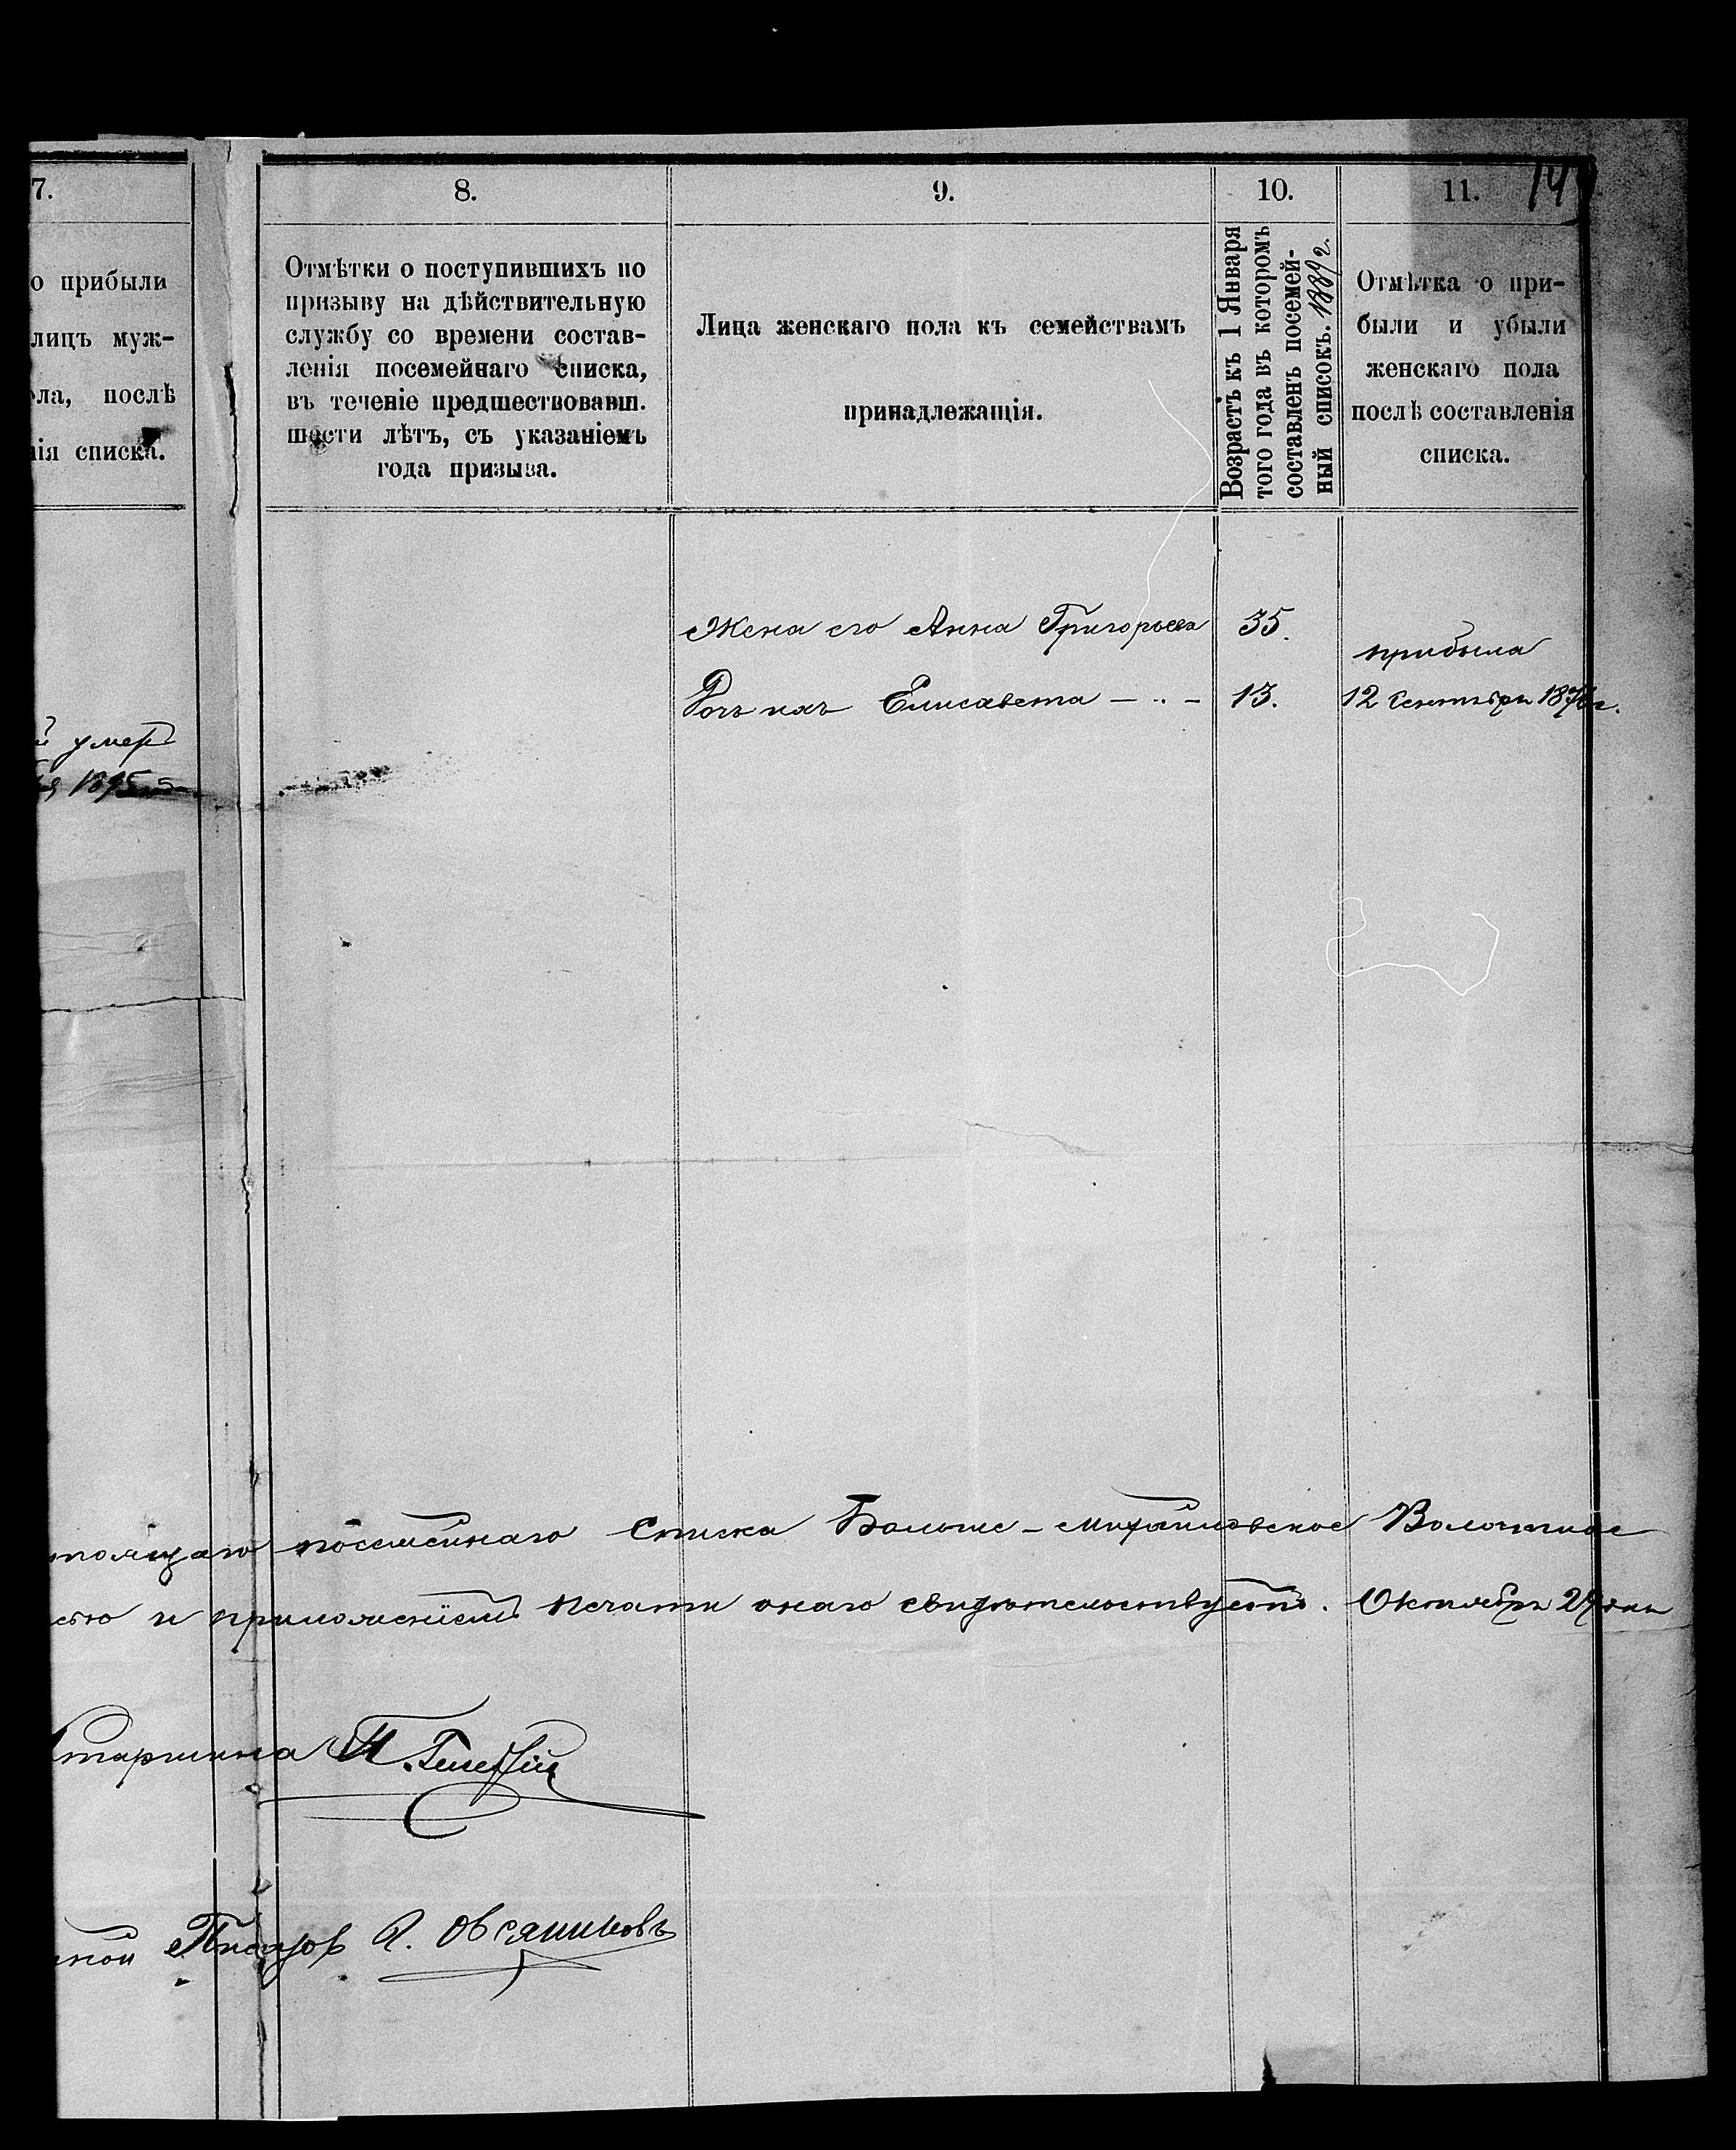 7.
8.
9.
10.
11.
о прибыли
лицъ муж-
ла, послѣ
нія списка.
Отмѣтки о поступившихъ по
призыву на дѣйствительную
службу со времени состав-
ленія посемейнаго списка,
въ теченіе предшествовавш.
шести лѣтъ, съ указаніемъ
года призыва.
Лица женскаго пола къ семействамъ
принадлежащія.
Возрастъ къ 1 Января
того года въ которомъ
составленъ посемей-
ный списокъ. 1889 г.
Отмѣтка о при-
были и убыли
женскаго пола
послѣ составленія
списка.
Жена его Анна Григорьева 35.
прибыла
Дочь ихъ Елисавета — „ — 13. 12 Сентября
умер
1895
тоящаго посемейнаго списка Больше-Михайловское Волостное
стю и приложеніемъ печати онаго свидѣтельствуетъ. Октября дня
Старшина
Писарь Овсяниковъ